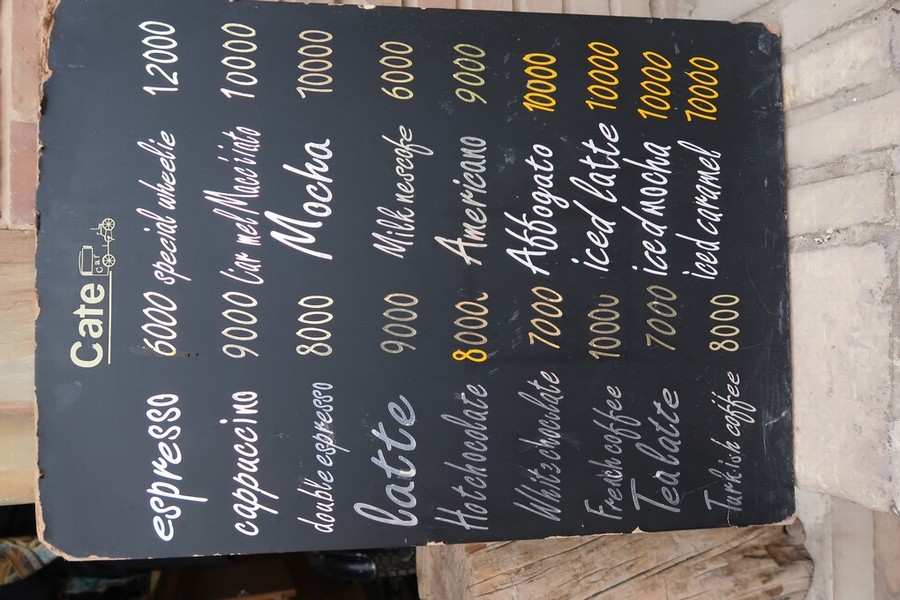 Cafe
car
espresso 6000 special wheelie 12000
cappuccino 9000 Car mel Macciiato 10000
double espresso 8000 Mocha 10000
latte 9000 Milk nescofe 6000
Hotchocolate 8000. Americano 9000
Whitschocolate 7000 Affogato 10000
French coffee 10000 iced latte 10000
Tea latte 7000 iced mocha 10000
Turkish coffee 8000 iced caramel 10000